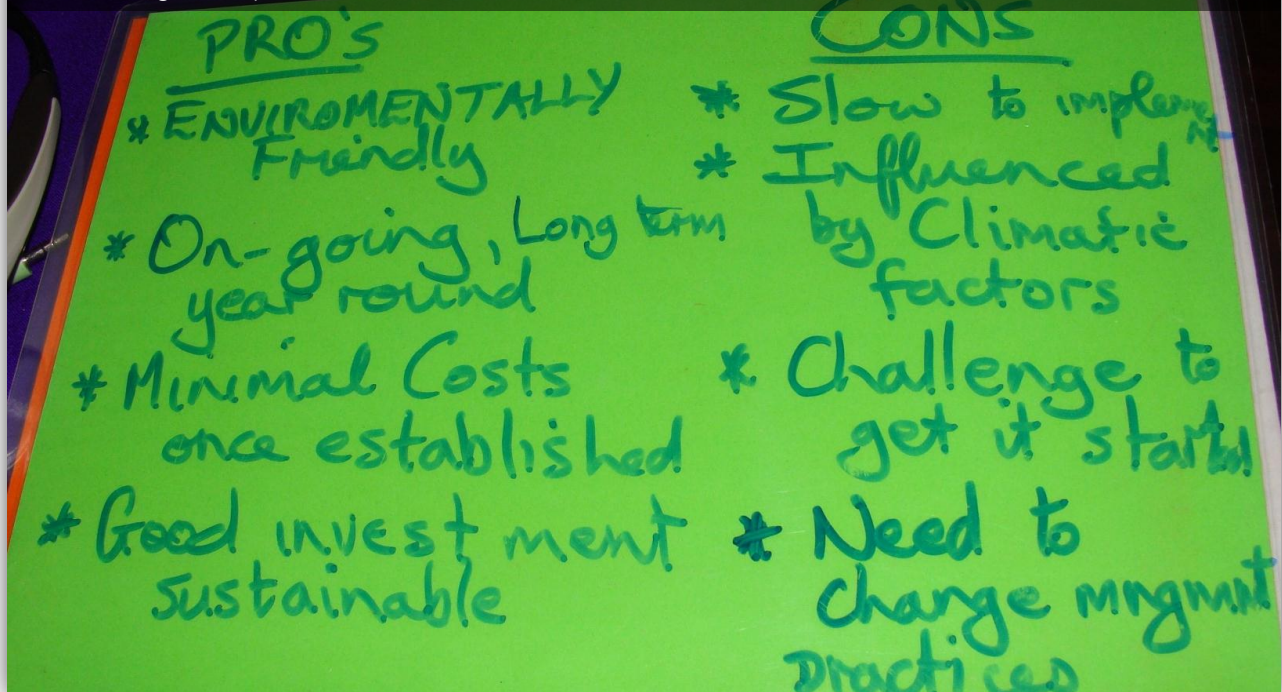 PRO'S
* ENVIROMENTALLY
Friendly
* On-going, Long term
year round
* Minimal Costs
once established
* Good investment
sustainable
CONS
* Slow to implement
* Influenced
by Climatic
factors
* Challenge to
get it started
* Need to
change mngmnt
practices